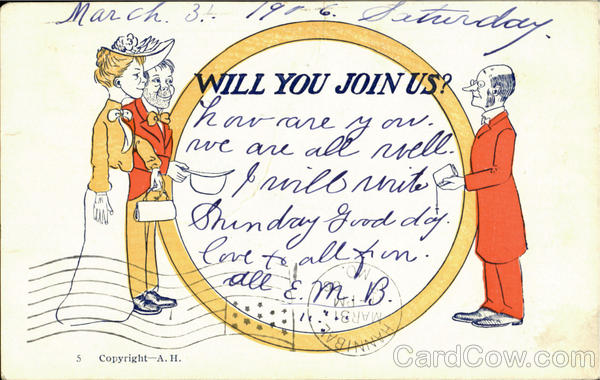 March. 31 1906. Saturday.
WILL YOU JOIN US?
how are you.
we are all well.
I will write
Shunday Good day.
love to all from.
all E. M. B.
HANNIBAL
MO.
MAR 31
PM
5 Copyright—A. H.
CardCow.com